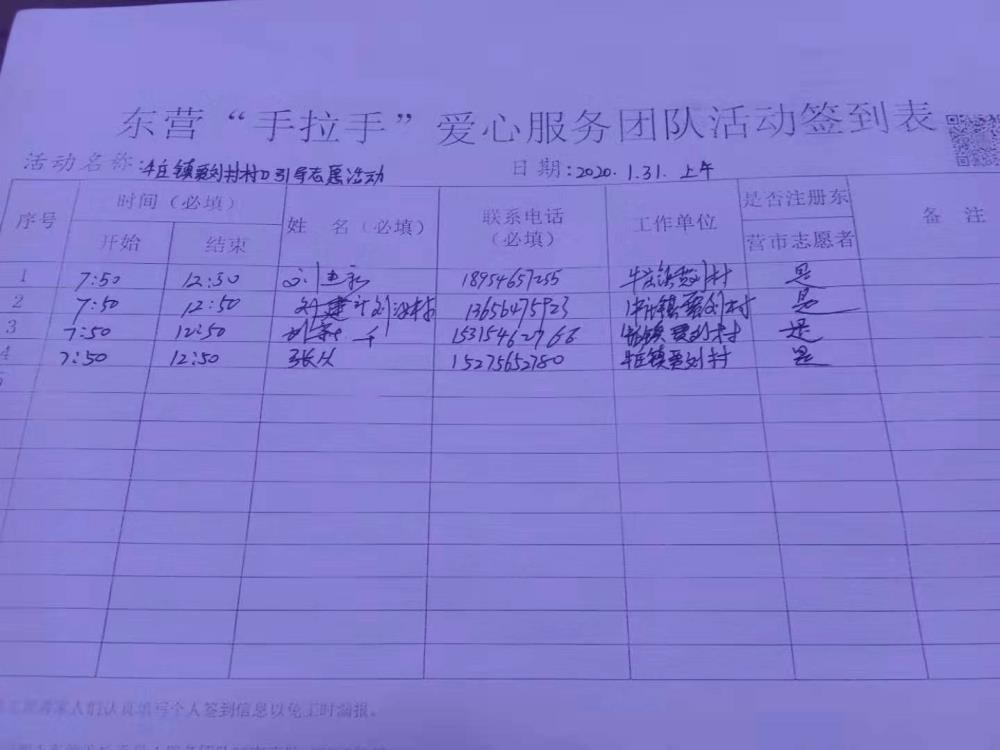 东营“手拉手”爱心服务团队活动签到表
活动名称:牛庄镇贾刘村村口引导志愿活动 日期:2020.1.31.上午
序号 时间(必填) 姓 名(必填) 联系电话(必填) 工作单位 是否注册东营市志愿者 备 注
开始 结束
1 7:50 12:50 18954657255 牛庄镇贾刘村 是
2 7:50 12:50 刘建 13656475923 牛庄镇贾刘村 是
3 7:50 12:50 15315462766 牛庄镇贾刘村 是
4 7:50 12:50 15275652780 牛庄镇贾刘村 是
5
家人们认真填写个人签到信息以免工时漏报。